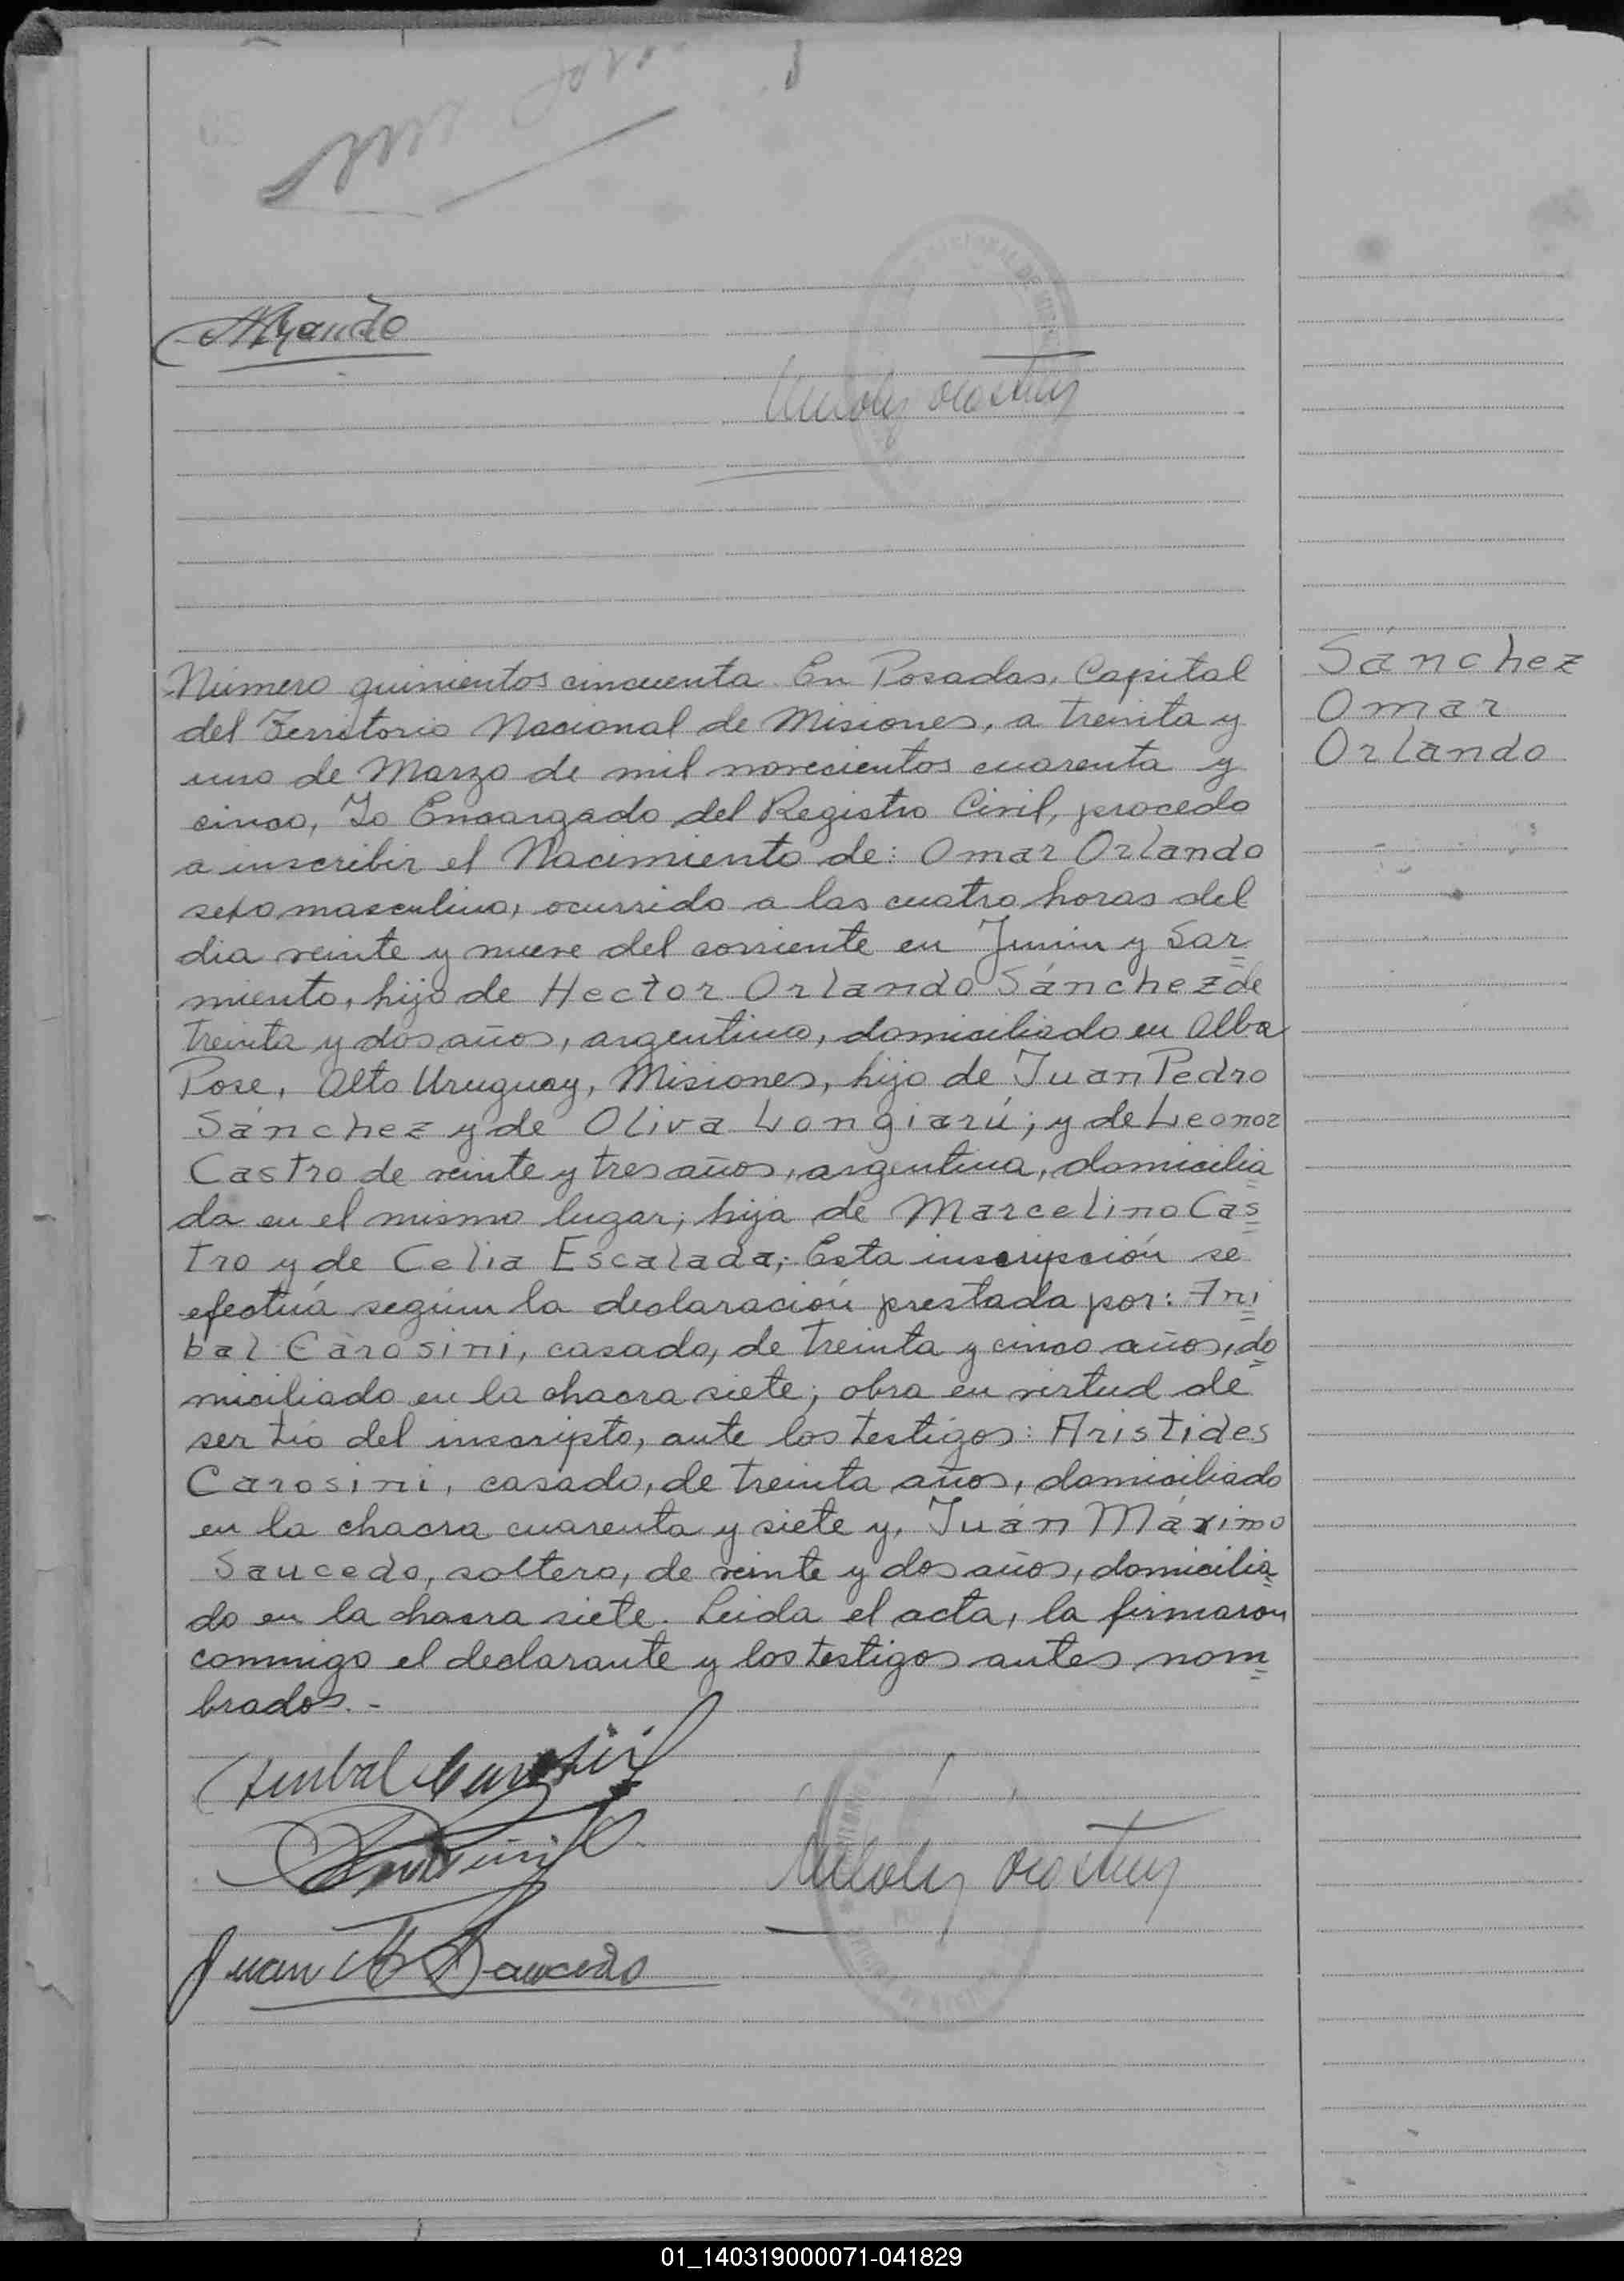 Número quinientos cincuenta. En Posadas, Capital
del Territorio Nacional de Misiones, a treinta y
uno de Marzo de mil novecientos cuarenta y
cinco, Yo Encargado del Registro Civil, procedo
a inscribir el Nacimiento de: Omar Orlando
sexo masculino, ocurrido a las cuatro horas del
dia veinte y nueve del corriente en Junin y Sar=
miento, hijo de Hector Orlando Sánchez de
treinta y dos años, argentino, domiciliado en Alba
Pose, Alto Uruguay, Misiones, hijo de Juan Pedro
Sánchez y de Oliva Longiarú; y de Leonor
Castro de veinte y tres años, argentina, domicilia=
da en el mismo lugar; hija de Marcelino Cas=
tro y de Celia Escalada; Esta inscripción se
efectúa según la declaración prestada por: Ani=
bal Carosini, casado, de treinta y cinco años, do=
miciliado en la chacra siete; obra en virtud de
ser tío del inscripto, ante los testigos: Aristides
Carosini, casado, de treinta años, domiciliado
en la chacra cuarenta y siete y, Juán Máximo
Saucedo, soltero, de veinte y dos años, domicilia=
do en la chacra siete. Leida el acta, la firmaron
conmigo el declarante y los testigos antes nom=
brados.-
Sánchez
Omar
Orlando
Anibal Carosini
Juan M Saucedo
01_140319000071-041829